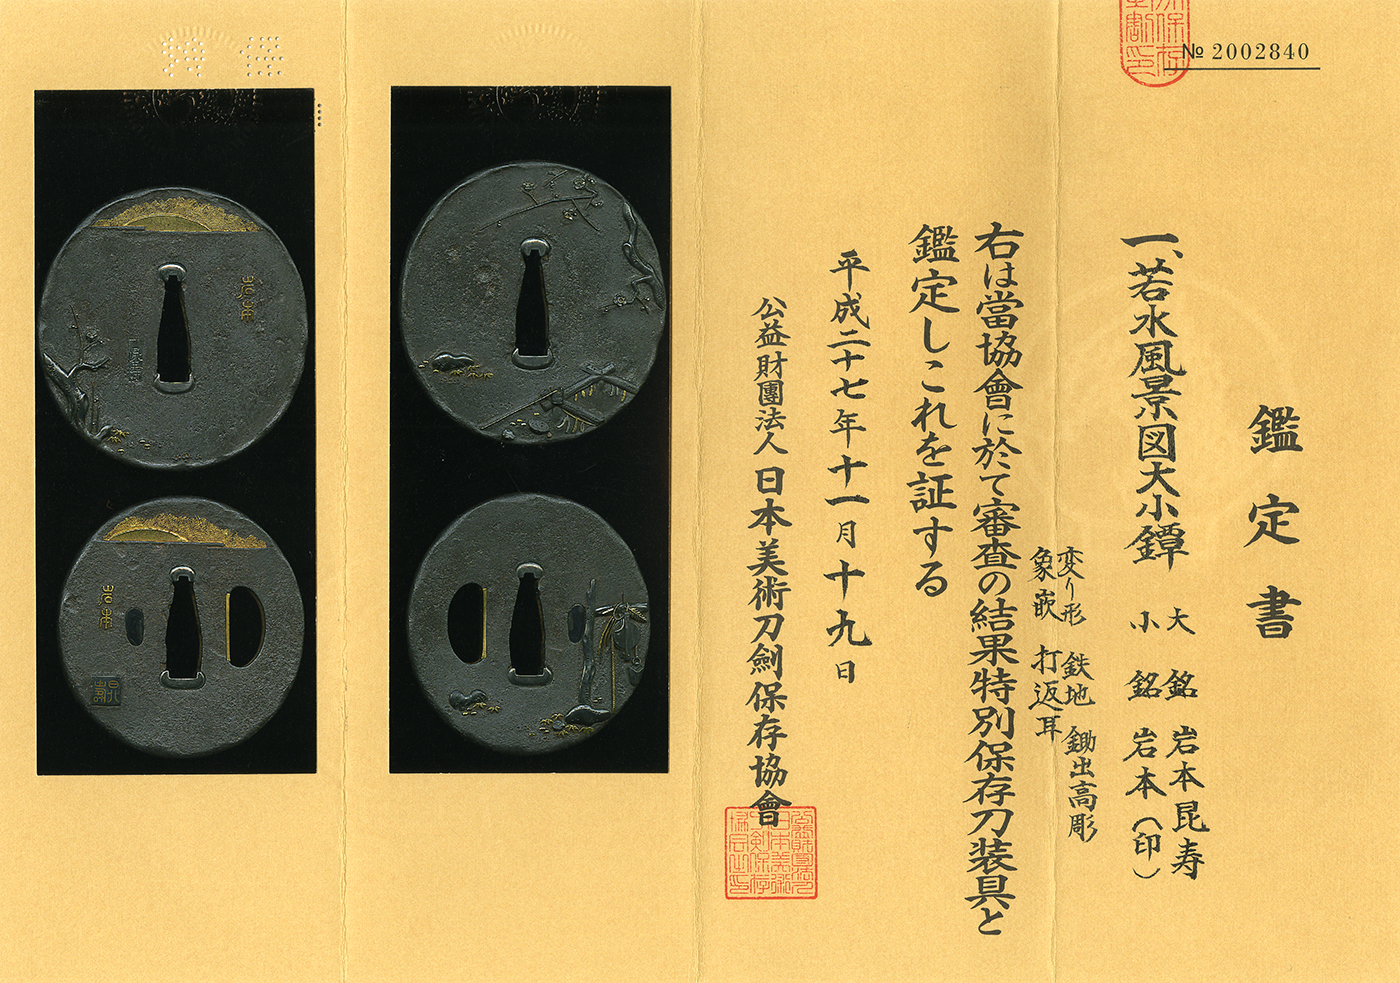 № 2002840
鑑定書
一、若水風景図大小鐔
大 銘 岩本昆寿
小 銘 岩本(印)
変り形 鉄地 鋤出高彫
象嵌 打返耳
右は當協會に於て審査の結果特別保存刀装具と
鑑定しこれを証する
平成二十七年十一月十九日
公益財團法人 日本美術刀劍保存協會
岩本
岩本
昆壽